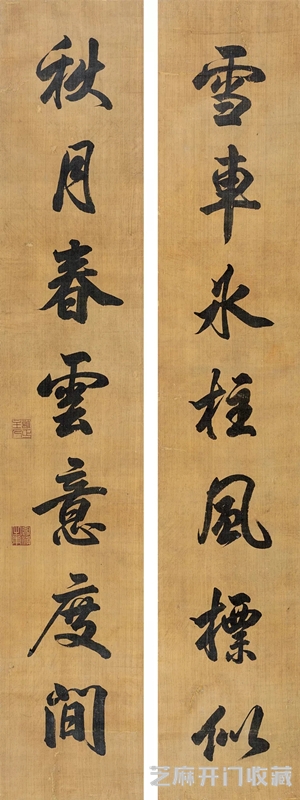 雪車冰柱風標似
秋月春雲意度間
芝麻开门收藏